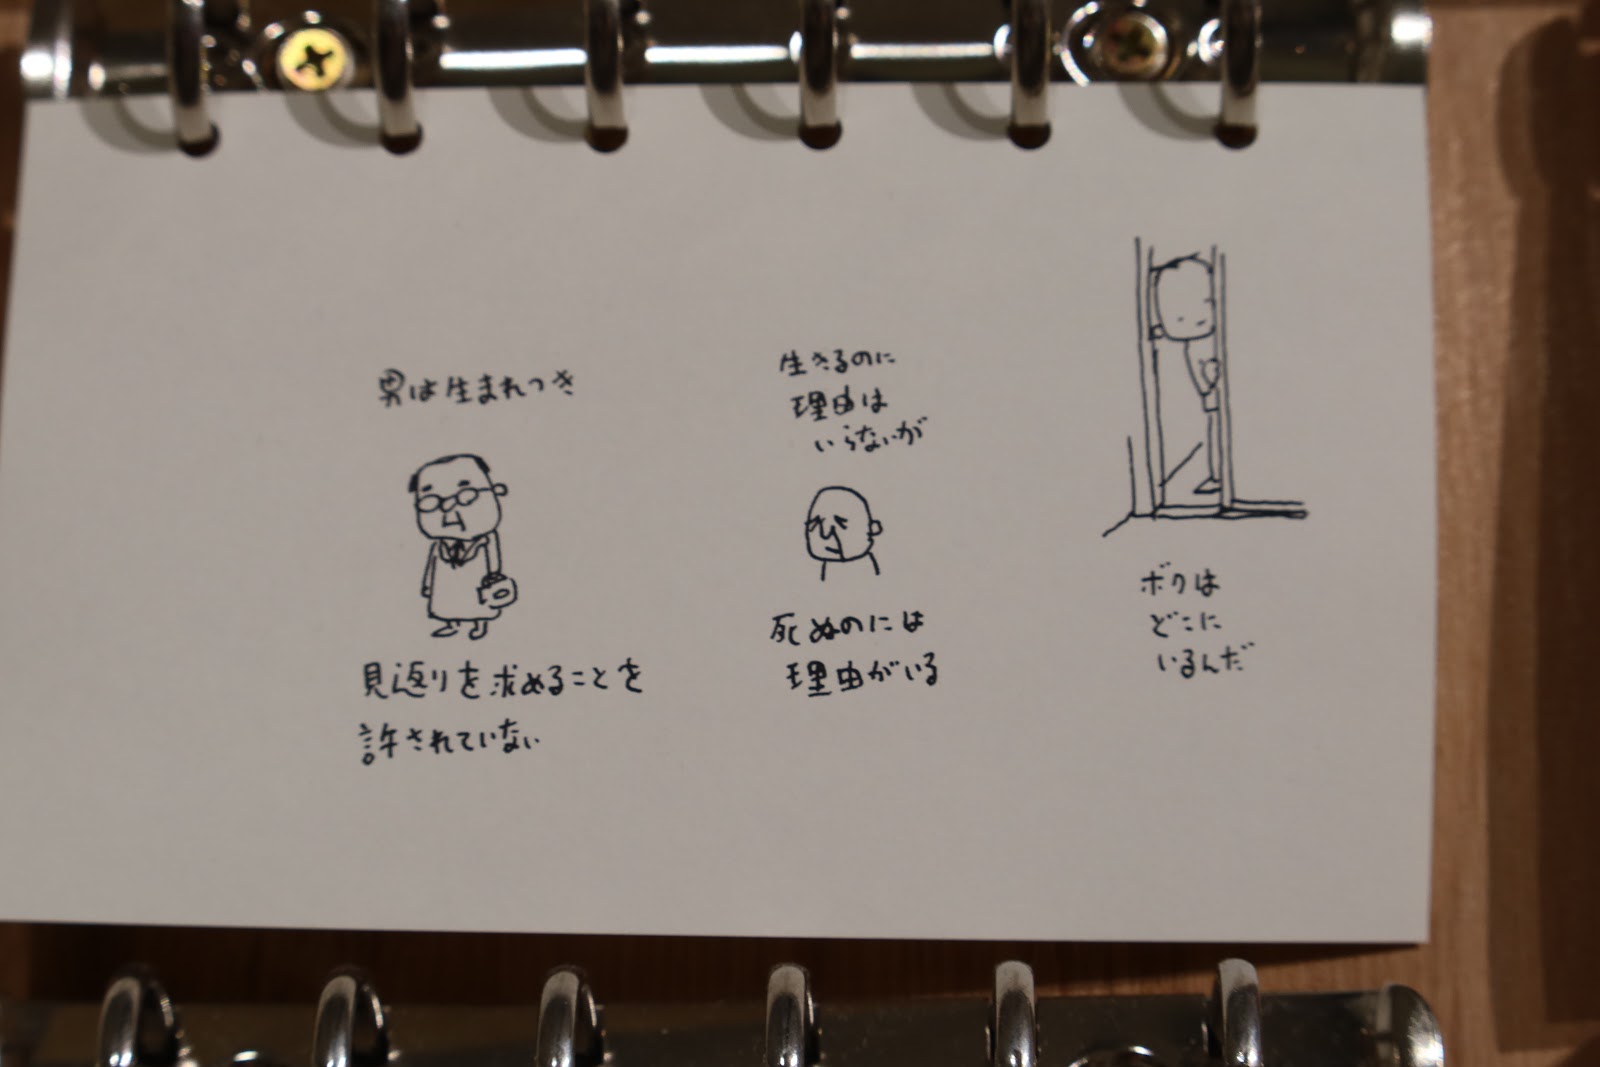 男は生まれつき
見返りを求めることを
許されていない
生きるのに
理由は
いらないが
死ぬのには
理由がいる
ボクは
どこに
いるんだ